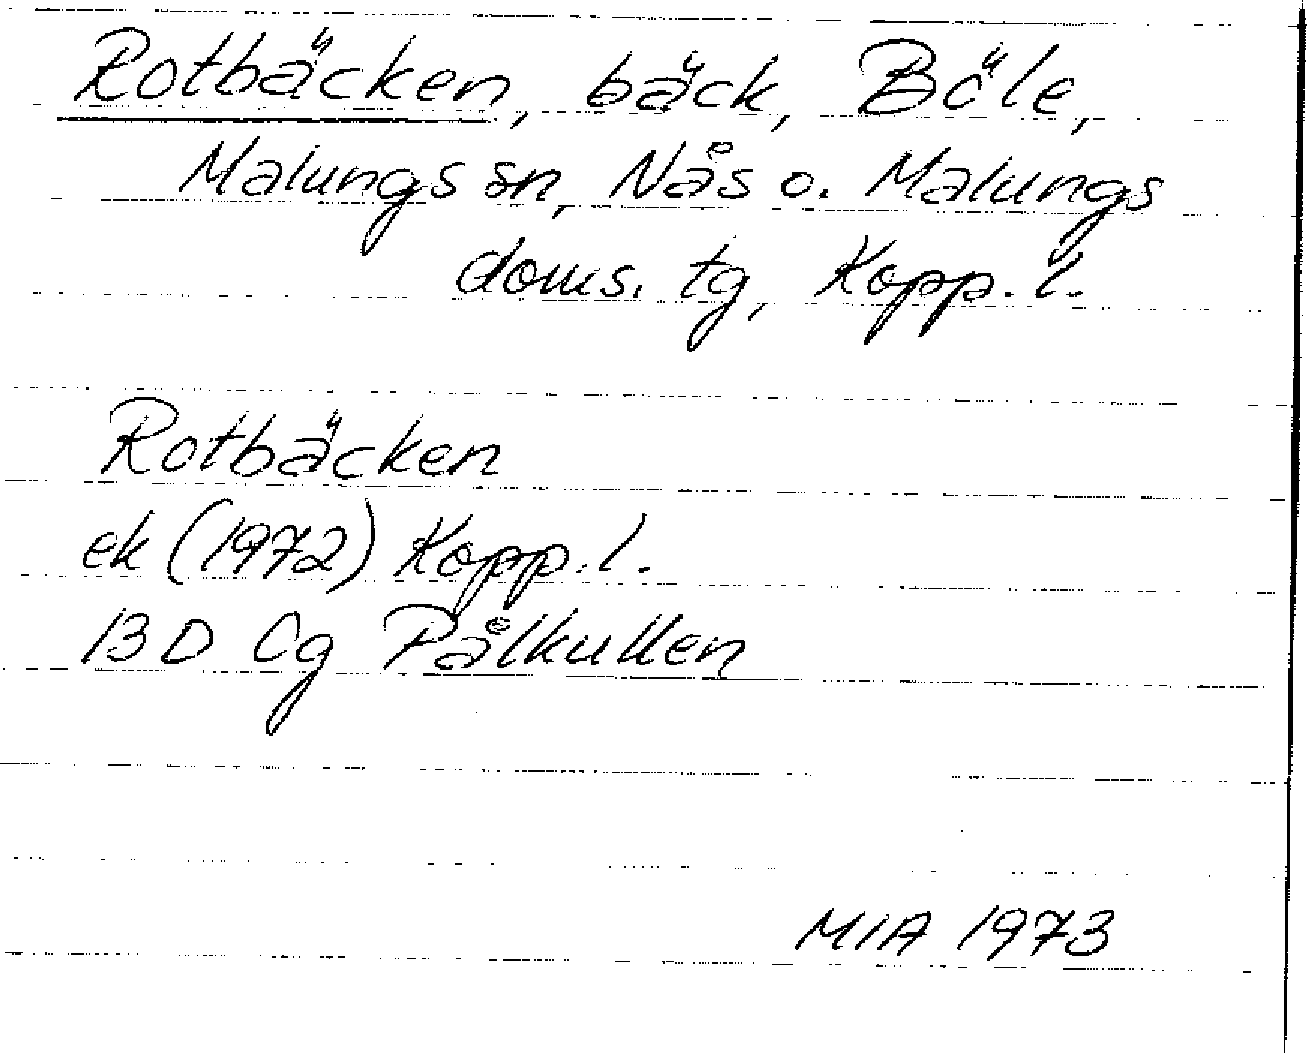 Rotbäcken, bäck, Böle,
Malungs sn, Nås o. Malungs
doms. tg, Kopp. l.
Rotbäcken
ek (1972) Kopp. l.
13 D Cg Pålkullen
MIA 1973